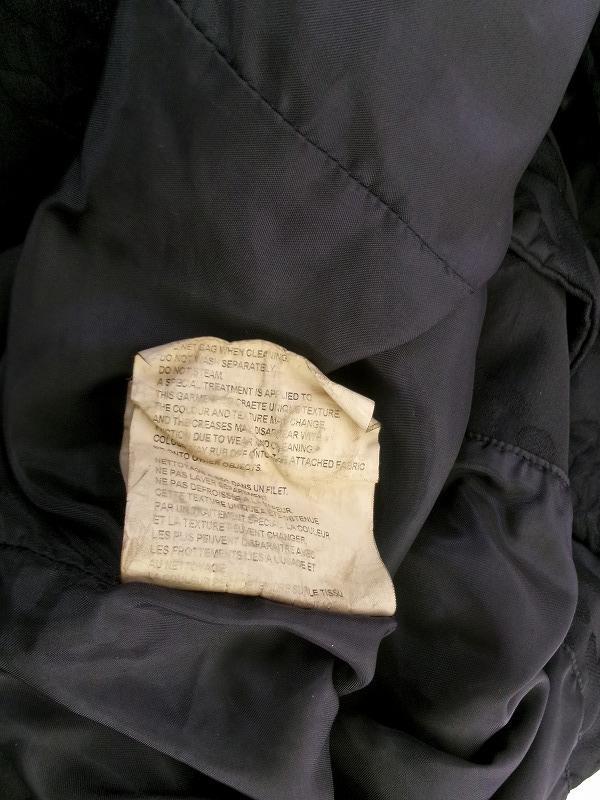 NET BAG WHEN CLEANING.
DO NOT WASH SEPARATELY.
DO NOT STEAM.
A SPECIAL TREATMENT IS APPLIED TO
THIS GARMENT CRAETE UNIQUE TEXTURE
THE COLOUR AND TEXTURE MAY CHANGE,
AND THE CREASES MAY DISAPPEAR WITH
FRICTION DUE TO WEAR AND CLEANING.
COLOUR MAY RUB OFF ONTO ATTACHED FABRIC
ONTO OTHER OBJECTS.
NETTOYAGE DANS UN FILET.
NE PAS LAVER SEPAREMENT.
NE PAS DEFROISSER A VAPEUR.
CETTE TEXTURE UNIQUE A ETE OBTENUE
PAR UN TRAITEMENT SPECIAL. LA COULEUR
ET LA TEXTURE PEUVENT CHANGER.
LES PLIS PEUVENT DISPARAITRE AVEC
LES FROTTEMENTS LIES A L'USAGE ET
AU NETTOYAGE.
SUR LE TISSU